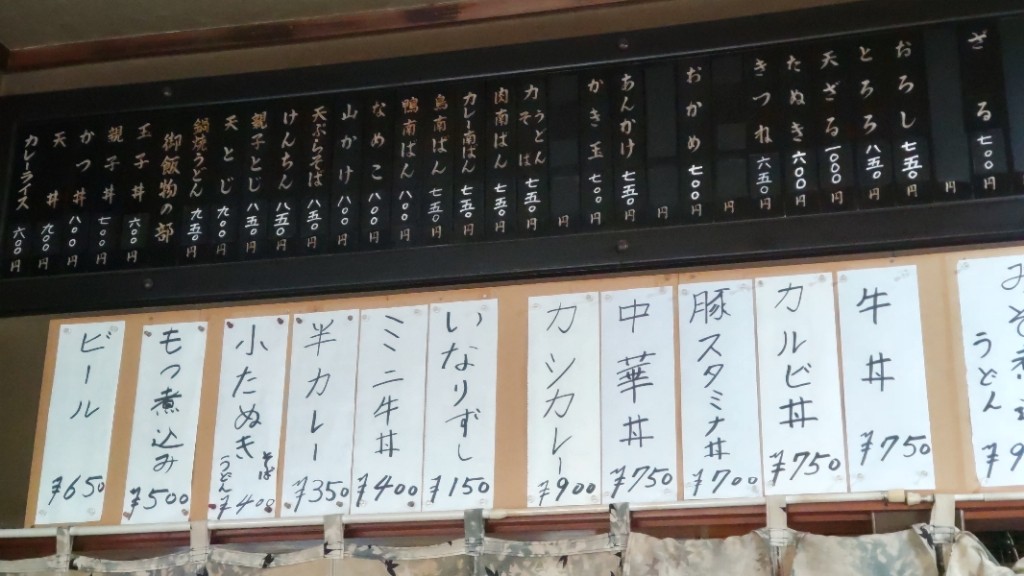 ざる 七〇〇円
円
おろし 七五〇円
とろろ 八五〇円
天ざる 一〇〇〇円
たぬき 六〇〇円
きつね 六五〇円
円
おかめ 七〇〇円
円
あんかけ 七五〇円
かき玉 七〇〇円
円
力うどん そば 七五〇円
肉南ばん 七五〇円
カレー南ばん 七五〇円
鳥南ばん 七五〇円
鴨南ばん 八〇〇円
なめこ 八〇〇円
山かけ 八〇〇円
天ぷらそば 八五〇円
けんちん 八五〇円
親子とじ 八五〇円
天とじ 九〇〇円
鍋焼うどん 九五〇円
御飯物の部
玉子丼 六〇〇円
親子丼 七〇〇円
かつ丼 八〇〇円
天丼 九〇〇円
カレーライス 六〇〇円
うどん
牛丼 ¥750
カルビ丼 ¥750
豚スタミナ丼 ¥700
中華丼 ¥750
カシカレー ¥900
いなりずし ¥150
ミニ牛丼 ¥400
半カレー ¥350
小たぬき そば うどん ¥400
もつ煮込み ¥500
ビール ¥650